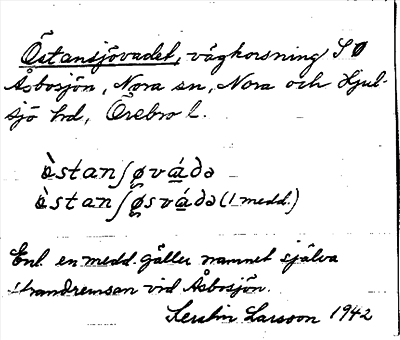 Östansjövadet, vägkorsning SO
Åsbosjön, Nora sn, Nora och Hjul-
sjö hd, Örebro l.
ὸstanʃø̨vádə
ὸstanʃø̨svádə (1 medd.)
Enl. en medd. gäller namnet själva
strandremsan vid Åsbosjön.
Kerstin Larsson 1942